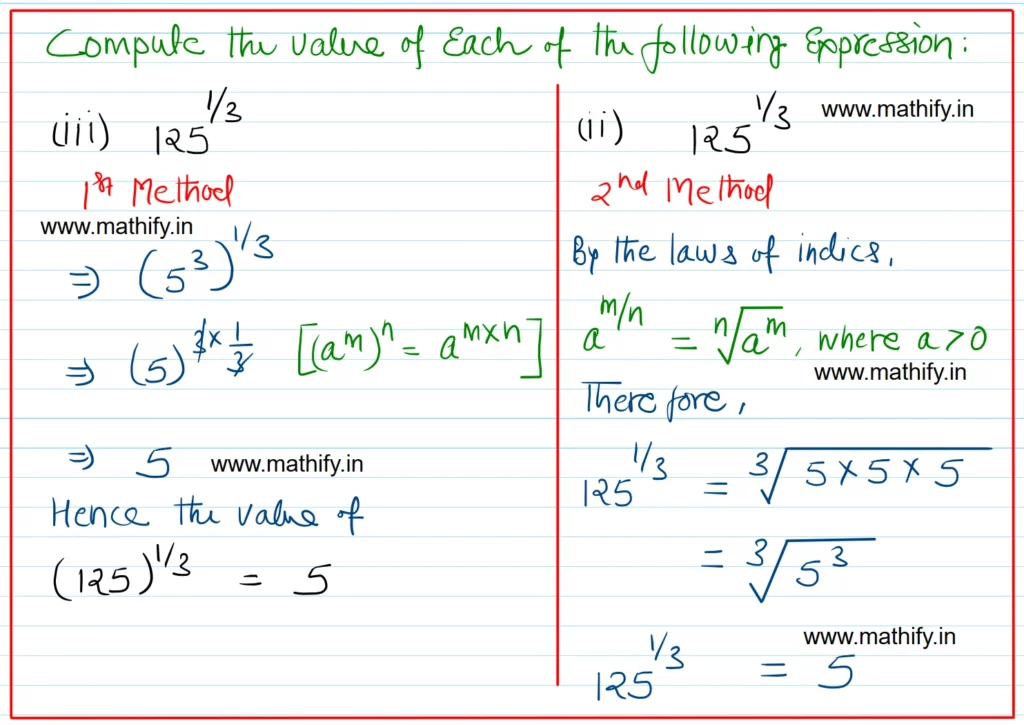 Compute the value of Each of the following Expression:
(iii) 125^1/3
1st Method
www.mathify.in
⇒ (5^3)^1/3
⇒ (5)^3×1/3 [(a^m)^n = a^m×n]
⇒ 5 www.mathify.in
Hence the value of
(125)^1/3 = 5
(ii) 125^1/3 www.mathify.in
2nd Method
By the laws of indics,
a^m/n = n√a^m, where a>0
www.mathify.in
Therefore,
125^1/3 = 3√5×5×5
= 3√5^3
www.mathify.in
125^1/3 = 5